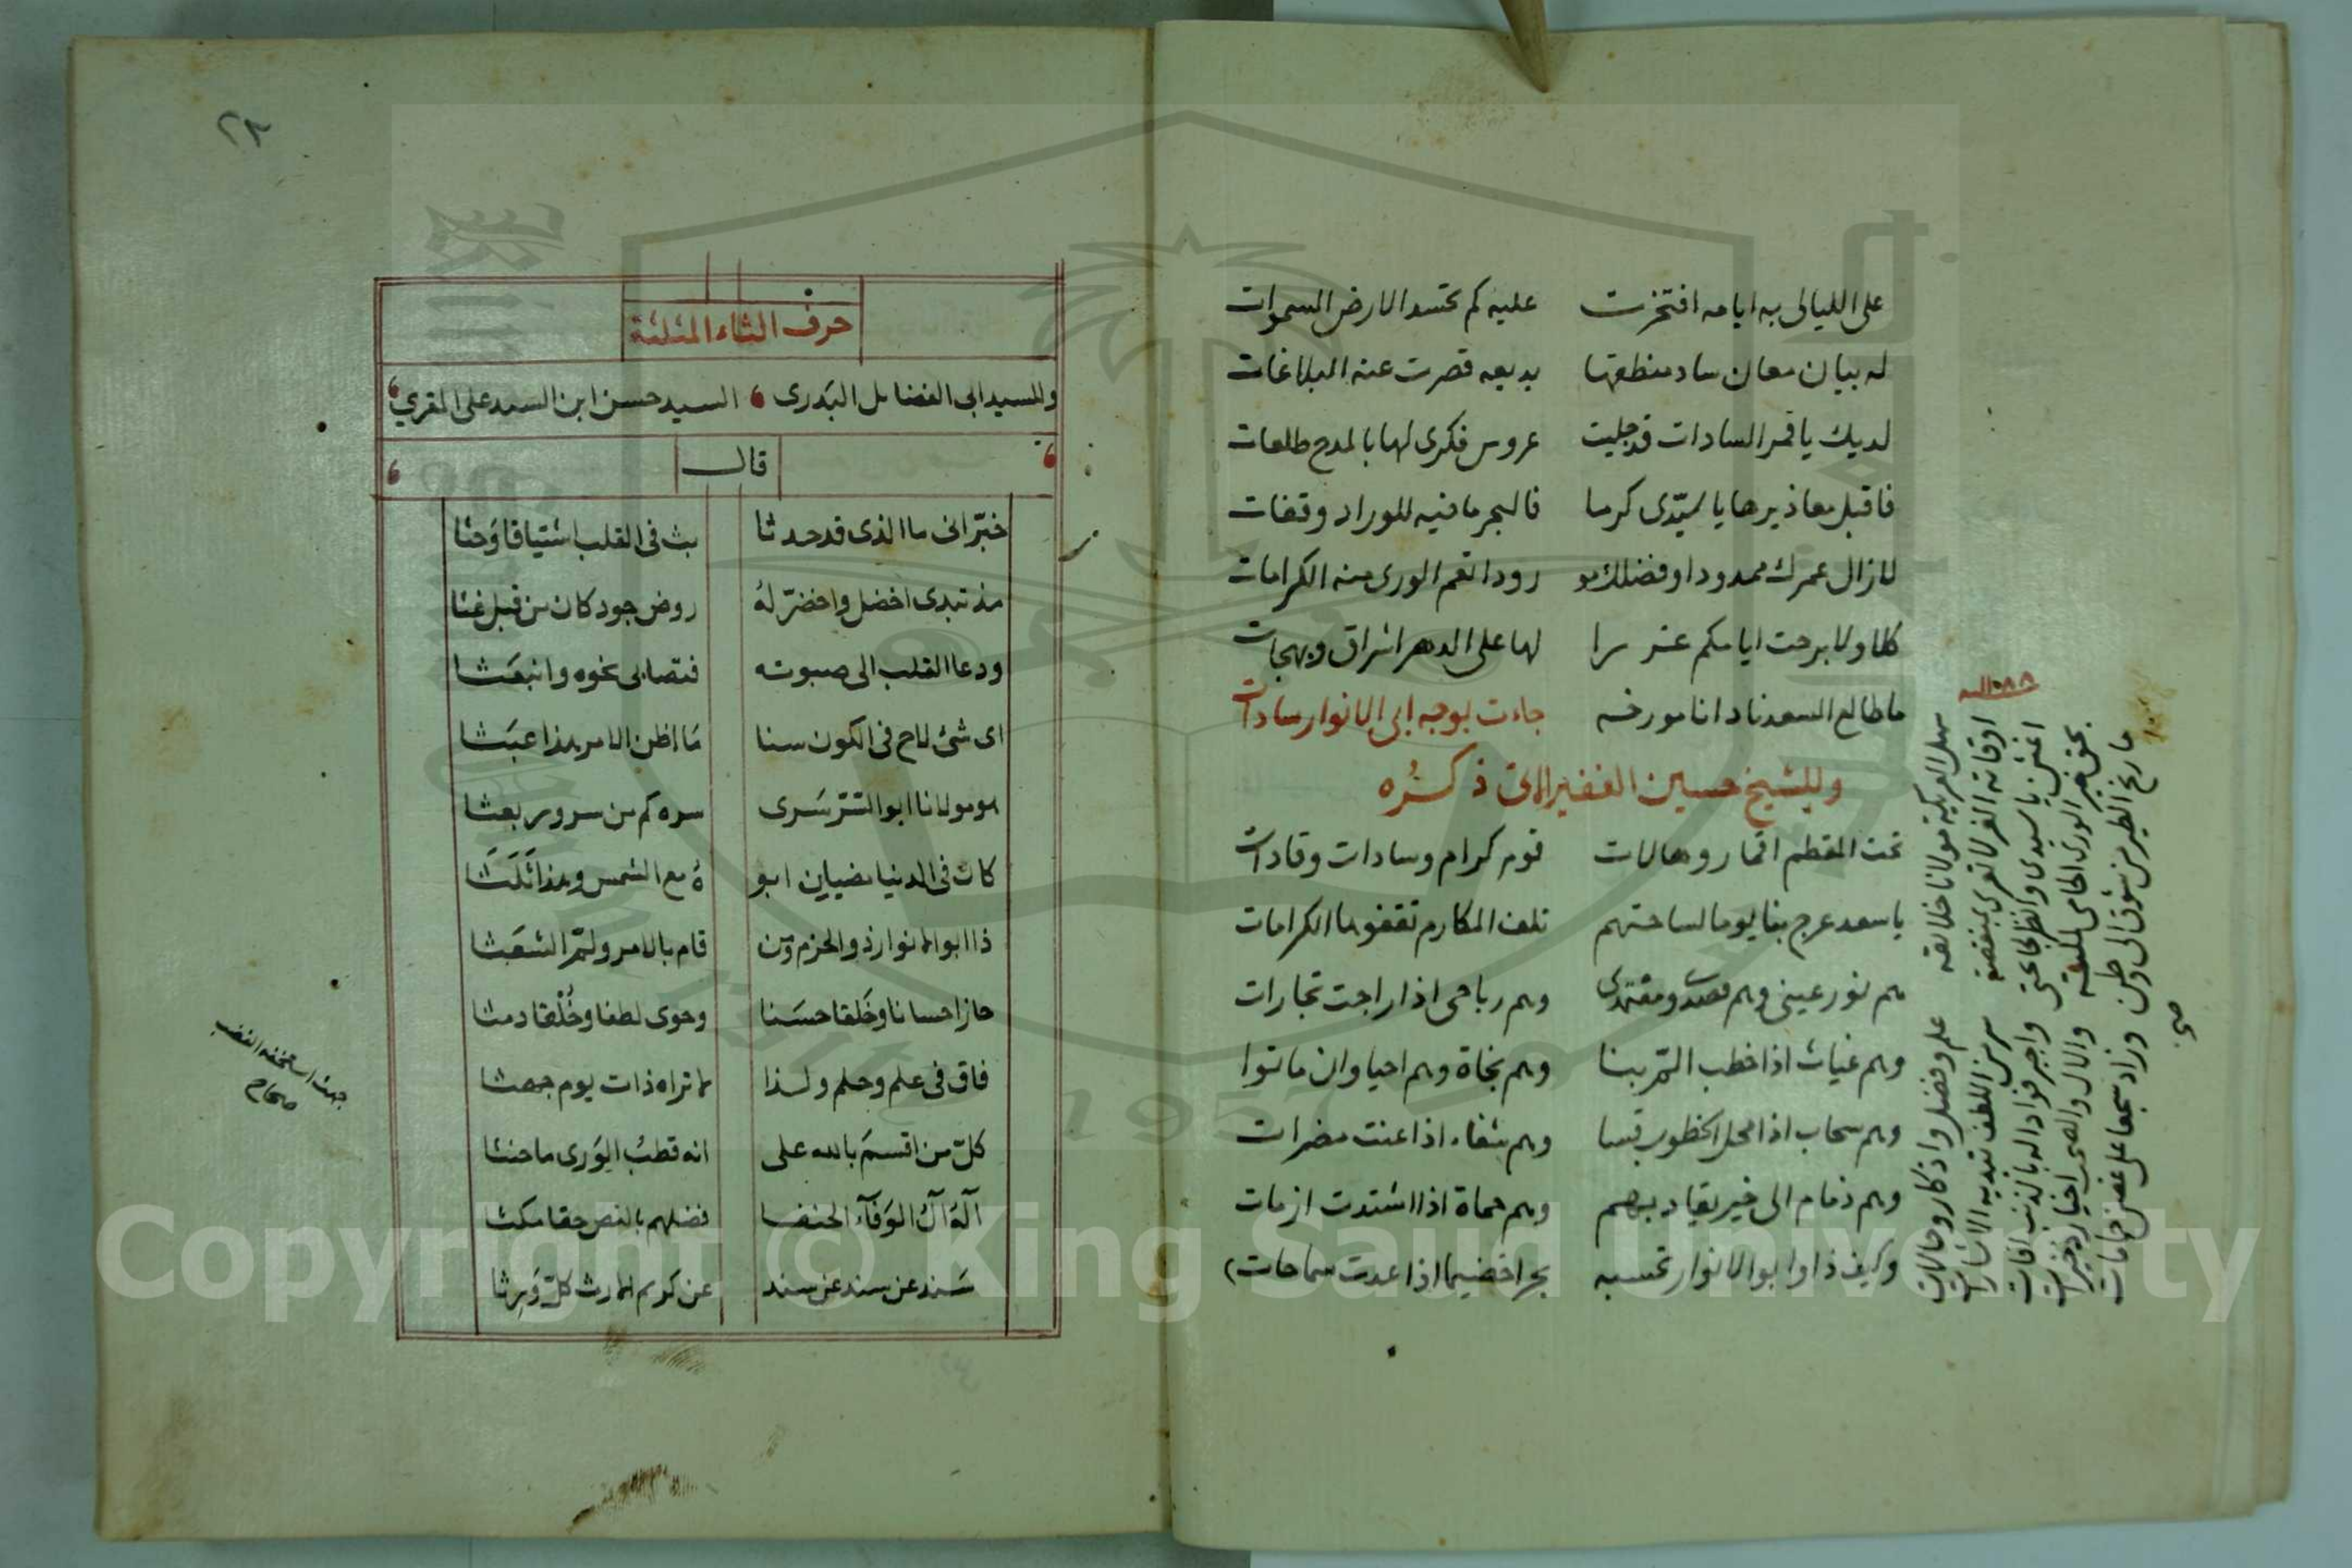 على الليالى به ايامه افتخرت عليه كم تحسد الارض السموات
له بيان معان ساد منطقها بديعه قصرت عنه البلاغات
لديك يا قمر السادات قد جليت عروس فكرى لها بالمدح طلعات
فاقبل معاذيرها يا سيّدى كرما فالبحر ما فيه للوراد وقفات
لازال عمرك ممدودا وفضلك مو رودا تعم الورى منه الكرامات
كلا ولا برحت ايامكم غررا لها على الدهر اشراق وبهجات
ما طالع السعد نادانا مورخه جاءت بوجه ابى الانوار سادات
١٠٨٨ سنه
وللشيخ حسين الفقير الاتى ذكره
تحت المقطم اقمار وهالات قوم كرام وسادات وقادات
يا سعد عرج بنا يوما لساحتهم تلف المكارم تقفوها الكرامات
هم نور عينى وهم قصدى ومقتصدى وهم رباحى اذا راجت تجارات
وهم غياث اذا خطب المّ بنا وهم نجاة وهم احيا وان ماتوا
وهم سحاب اذا محل الخطوب قسا وهم شفاء اذا عنت مضرات
وهم ذمام الى خير يقاد بهم وهم حماة اذا اشتدت ازمات
وكيف ذا وابو الانوار تحسبه بحرا خضيما اذا عدت سماحات
سهل العريكة مولانا خلائقه علم وفضل واذكار وحالات
اوقاته الغر لا تعرى بمنقصة سر من اللطف تبديه الاشارات
اغثن يا سيدى وانظر لحاجتى واجبر فؤادا له بالذنب افات
بحق خير الورى الحامى لملته والال والصحب اخيار ذخيرات
ما رنح الطير من شوق الى وطن وزاد سجعا على غصن حمامات
صح
٢٨
حرف الثاء المثلثة
وللسيد ابى الفضايل البَدرى السيد حسن ابن السيد على المقري
قال
خبّرانى ما الذى قد حدثا بث فى القلب اشتياقا وَحثا
مذ تبدى اخضل واخضرّ لهُ روض جود كان من قبل غثا
ودعا القلب الى صبوته فتصابى نحوه وانبعَثا
اى شئ لاح فى الكون سنا مَا اظن الامر هذا عبَثا
هو مولانا ابو السّر سَرى سره كم من سرور بعثا
كان فى الدنيا مضيان ابو هُ مع الشمس وهذا ثَلَثَا
ذا ابو الانوار ذو الحزم ومن قام بالامر ولمّ الشعَثا
حاز احسانا وخَلقا حسَنا وحوى لطفا وخُلْقا دمثا
فاق فى علم وحلم ولذا لا تراه ذات يوم جهثا
كلّ من اقسمَ بالله على انه قطبُ الوَرى ما حنثا
آلهُ آلُ الوَفآء الحنفا فضلهم بالنص حقا مكثا
سَند عن سند عن سند عن كريم الارث كلّ وَرِثا
جهث استخفه الغضب
صحاح
Copyright © King Saud University
1957